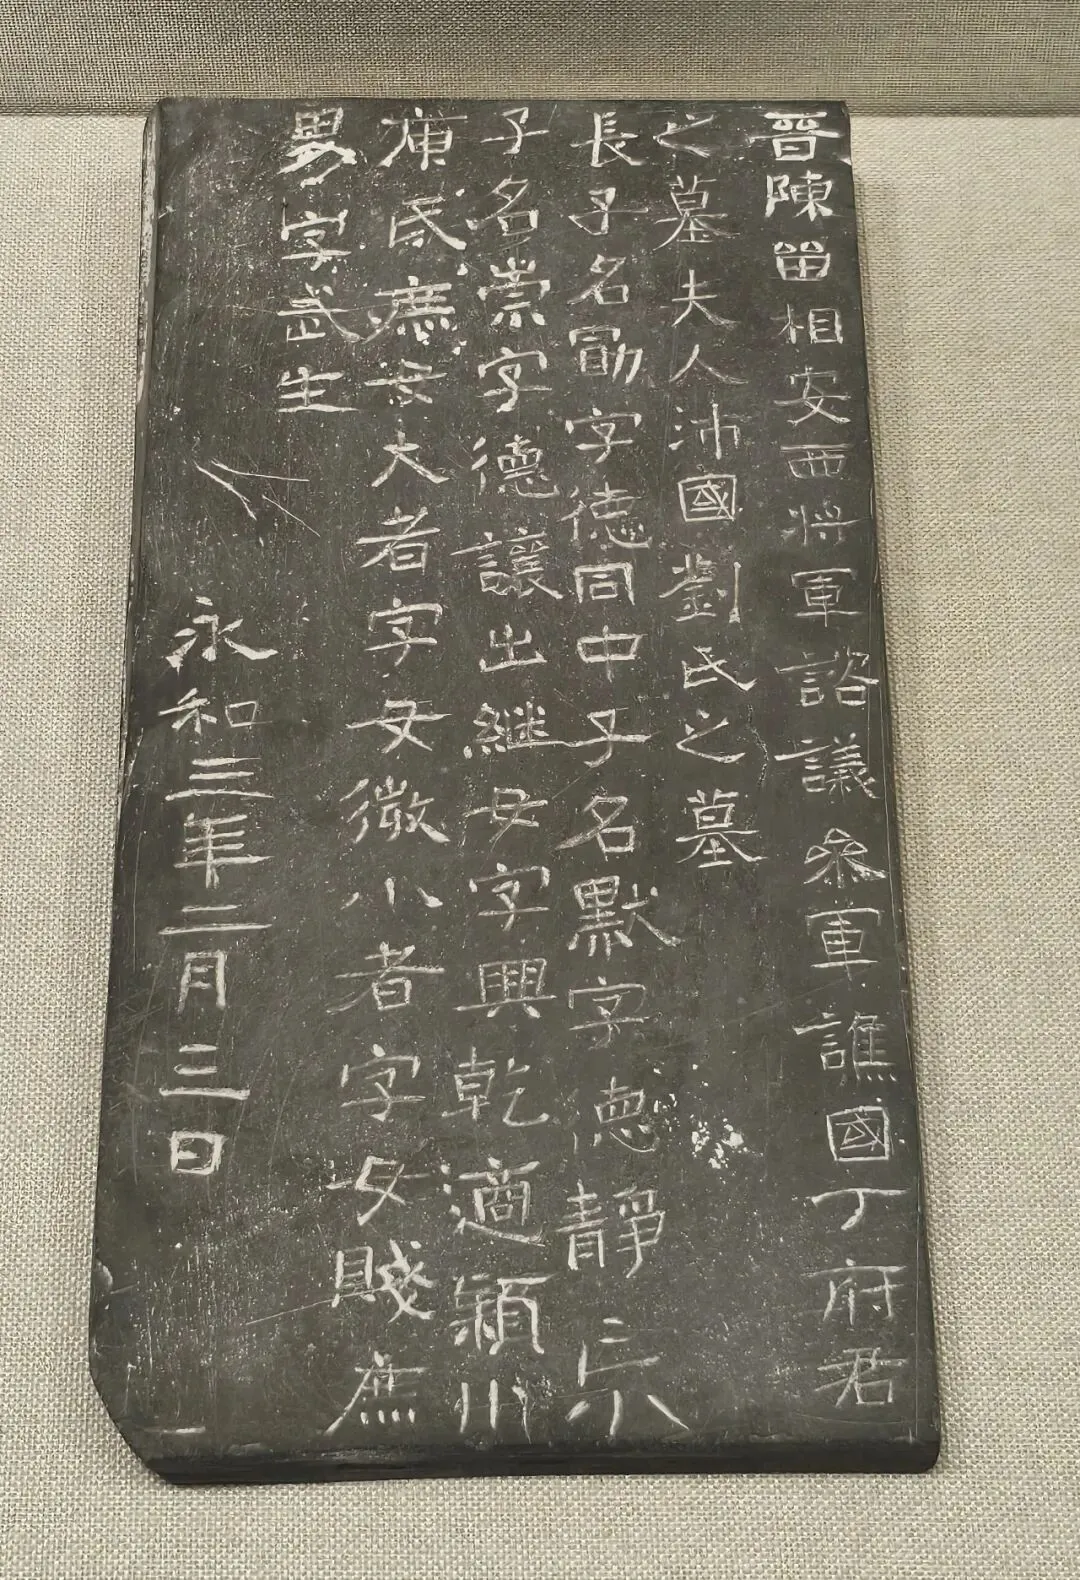 晉陳留相安西將軍諮議參軍譙國丁府君
之墓夫人沛國劉氏之墓
長子名勖字德同中子名默字德靜宗
子名崇字德讓出継女字興乾適潁川
庾氏庶女大者字女徵小者字女賤庶
男字武生
永和三年二月三日